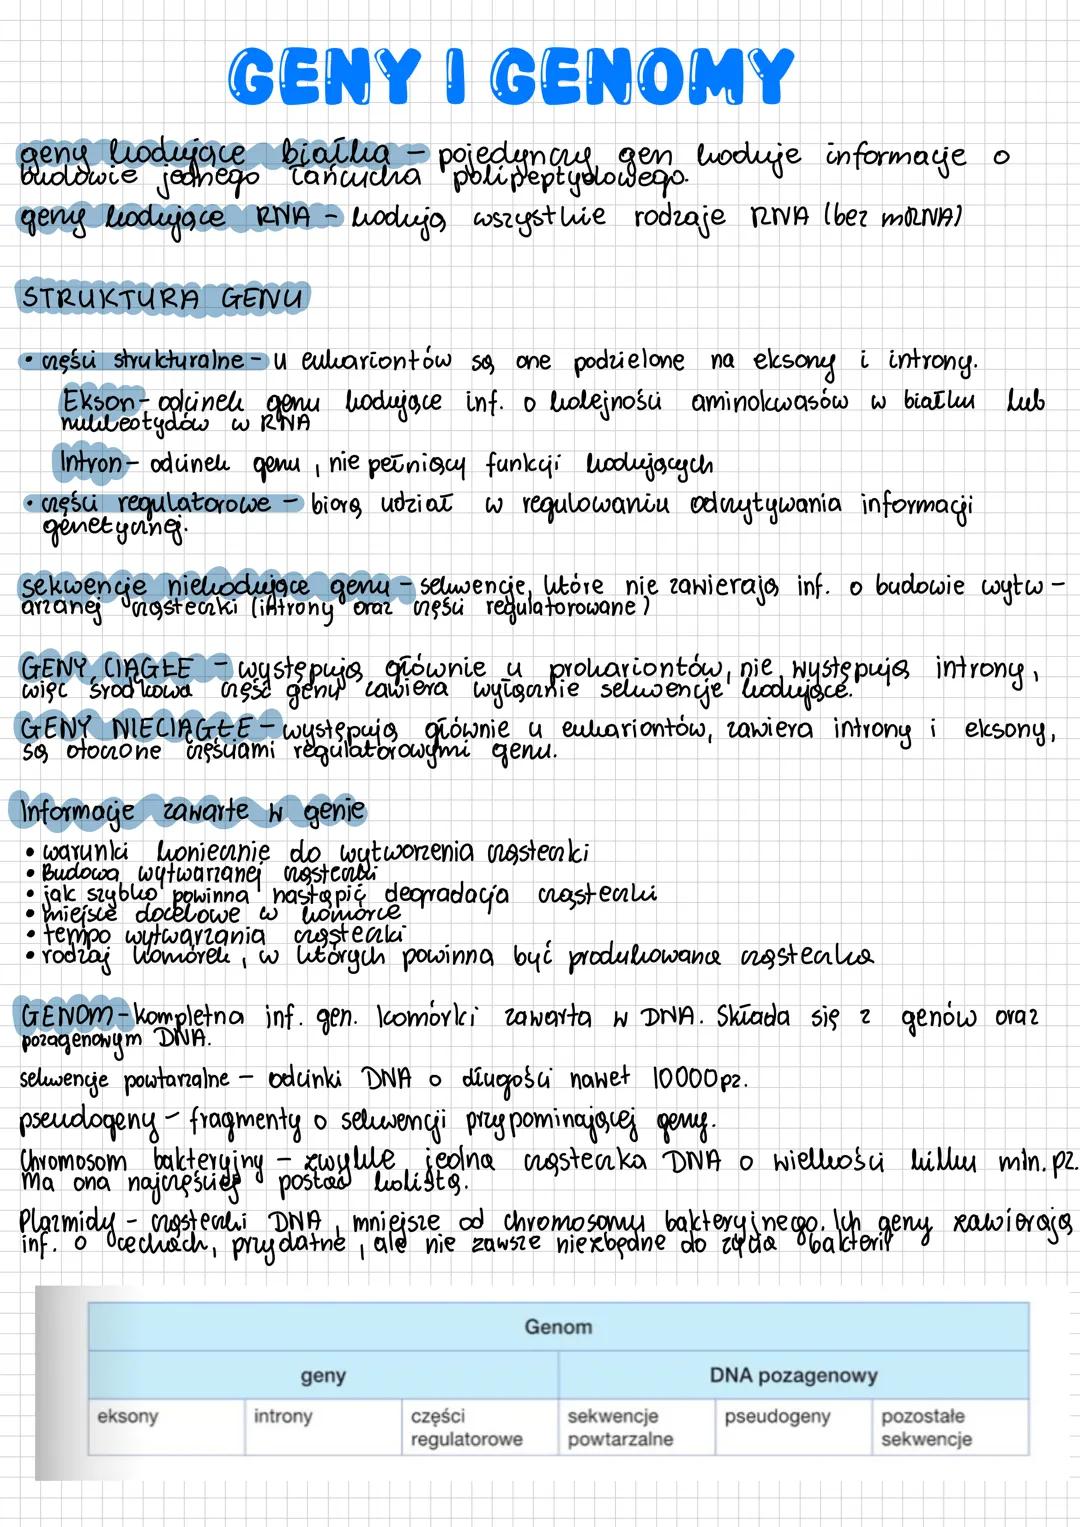 GENY I GENOMY
geny kodujące białka – pojedynczy gen koduje informacje o
budowie jednego łańcucha polipeptydowego.
geny kodujące RNA – kodują wszystkie rodzaje RNA (bez mRNA)
STRUKTURA GENU
• części strukturalne – u eukariontów są one podzielone na eksony i introny.
Ekson – odcinek genu kodujące inf. o kolejności aminokwasów w białku lub
nukleotydów w RNA
Intron – odcinek genu, nie pełniący funkcji kodujących
• części regulatorowe – biorą udział w regulowaniu odczytywania informacji
genetycznej.
sekwencje niekodujące genu – sekwencje, które nie zawierają inf. o budowie wytw –
arzanej cząsteczki (introny oraz części regulatorowane)
GENY CIĄGŁE – występują głównie u prokariontów, nie występują introny,
więc środkowa część genu zawiera wyłącznie sekwencje kodujące.
GENY NIECIĄGŁE – występują głównie u eukariontów, zawiera introny i eksony,
są otoczone częściami regulatorowymi genu.
Informacje zawarte w genie
• warunki koniecznie do wytworzenia cząsteczki
• Budowa wytwarzanej cząsteczki
• jak szybko powinna nastąpić degradacja cząsteczki
• miejsce docelowe w komórce
• tempo wytwarzania cząsteczki
• rodzaj komórek, w których powinna być produkowana cząsteczka
GENOM – kompletna inf. gen. komórki zawarta w DNA. Składa się z genów oraz
pozagenowym DNA.
sekwencje powtarzalne – odcinki DNA o długości nawet 10000pz.
pseudogeny – fragmenty o sekwencji przypominającej geny.
Chromosom bakteryjny – zwykle jedna cząsteczka DNA o wielkości kilku mln. pz.
Ma ona najczęściej postać kolistą.
Plazmidy – cząsteczki DNA, mniejsze od chromosomu bakteryjnego. Ich geny zawierają
inf. o cechach, przydatne, ale nie zawsze niezbędne do życia bakterii
Genom
geny DNA pozagenowy
eksony introny części sekwencje pseudogeny pozostałe
regulatorowe powtarzalne sekwencje